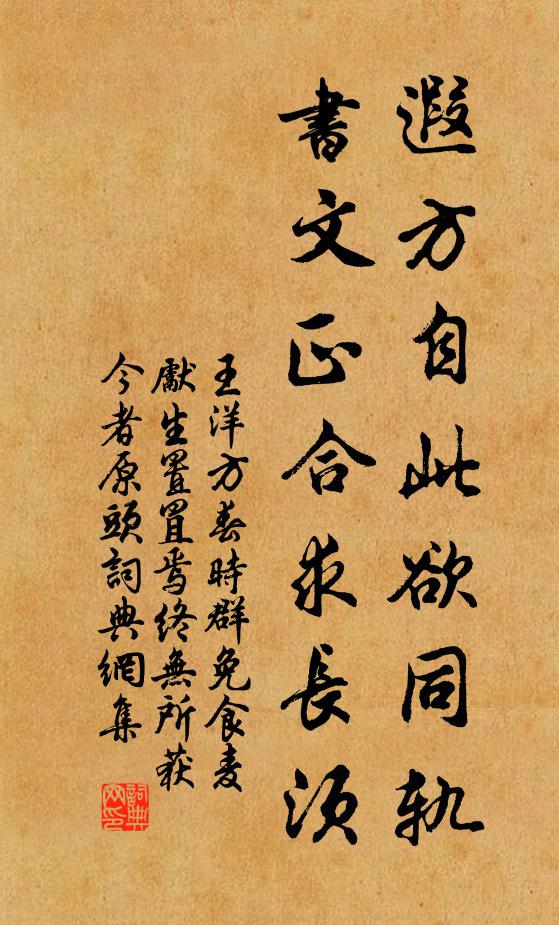 遐方自此欲同軌
書文正合求長須
王洋方春時群兔食麦
獻生置罝焉終無所获
今者原頭詞典網集
詞典网印